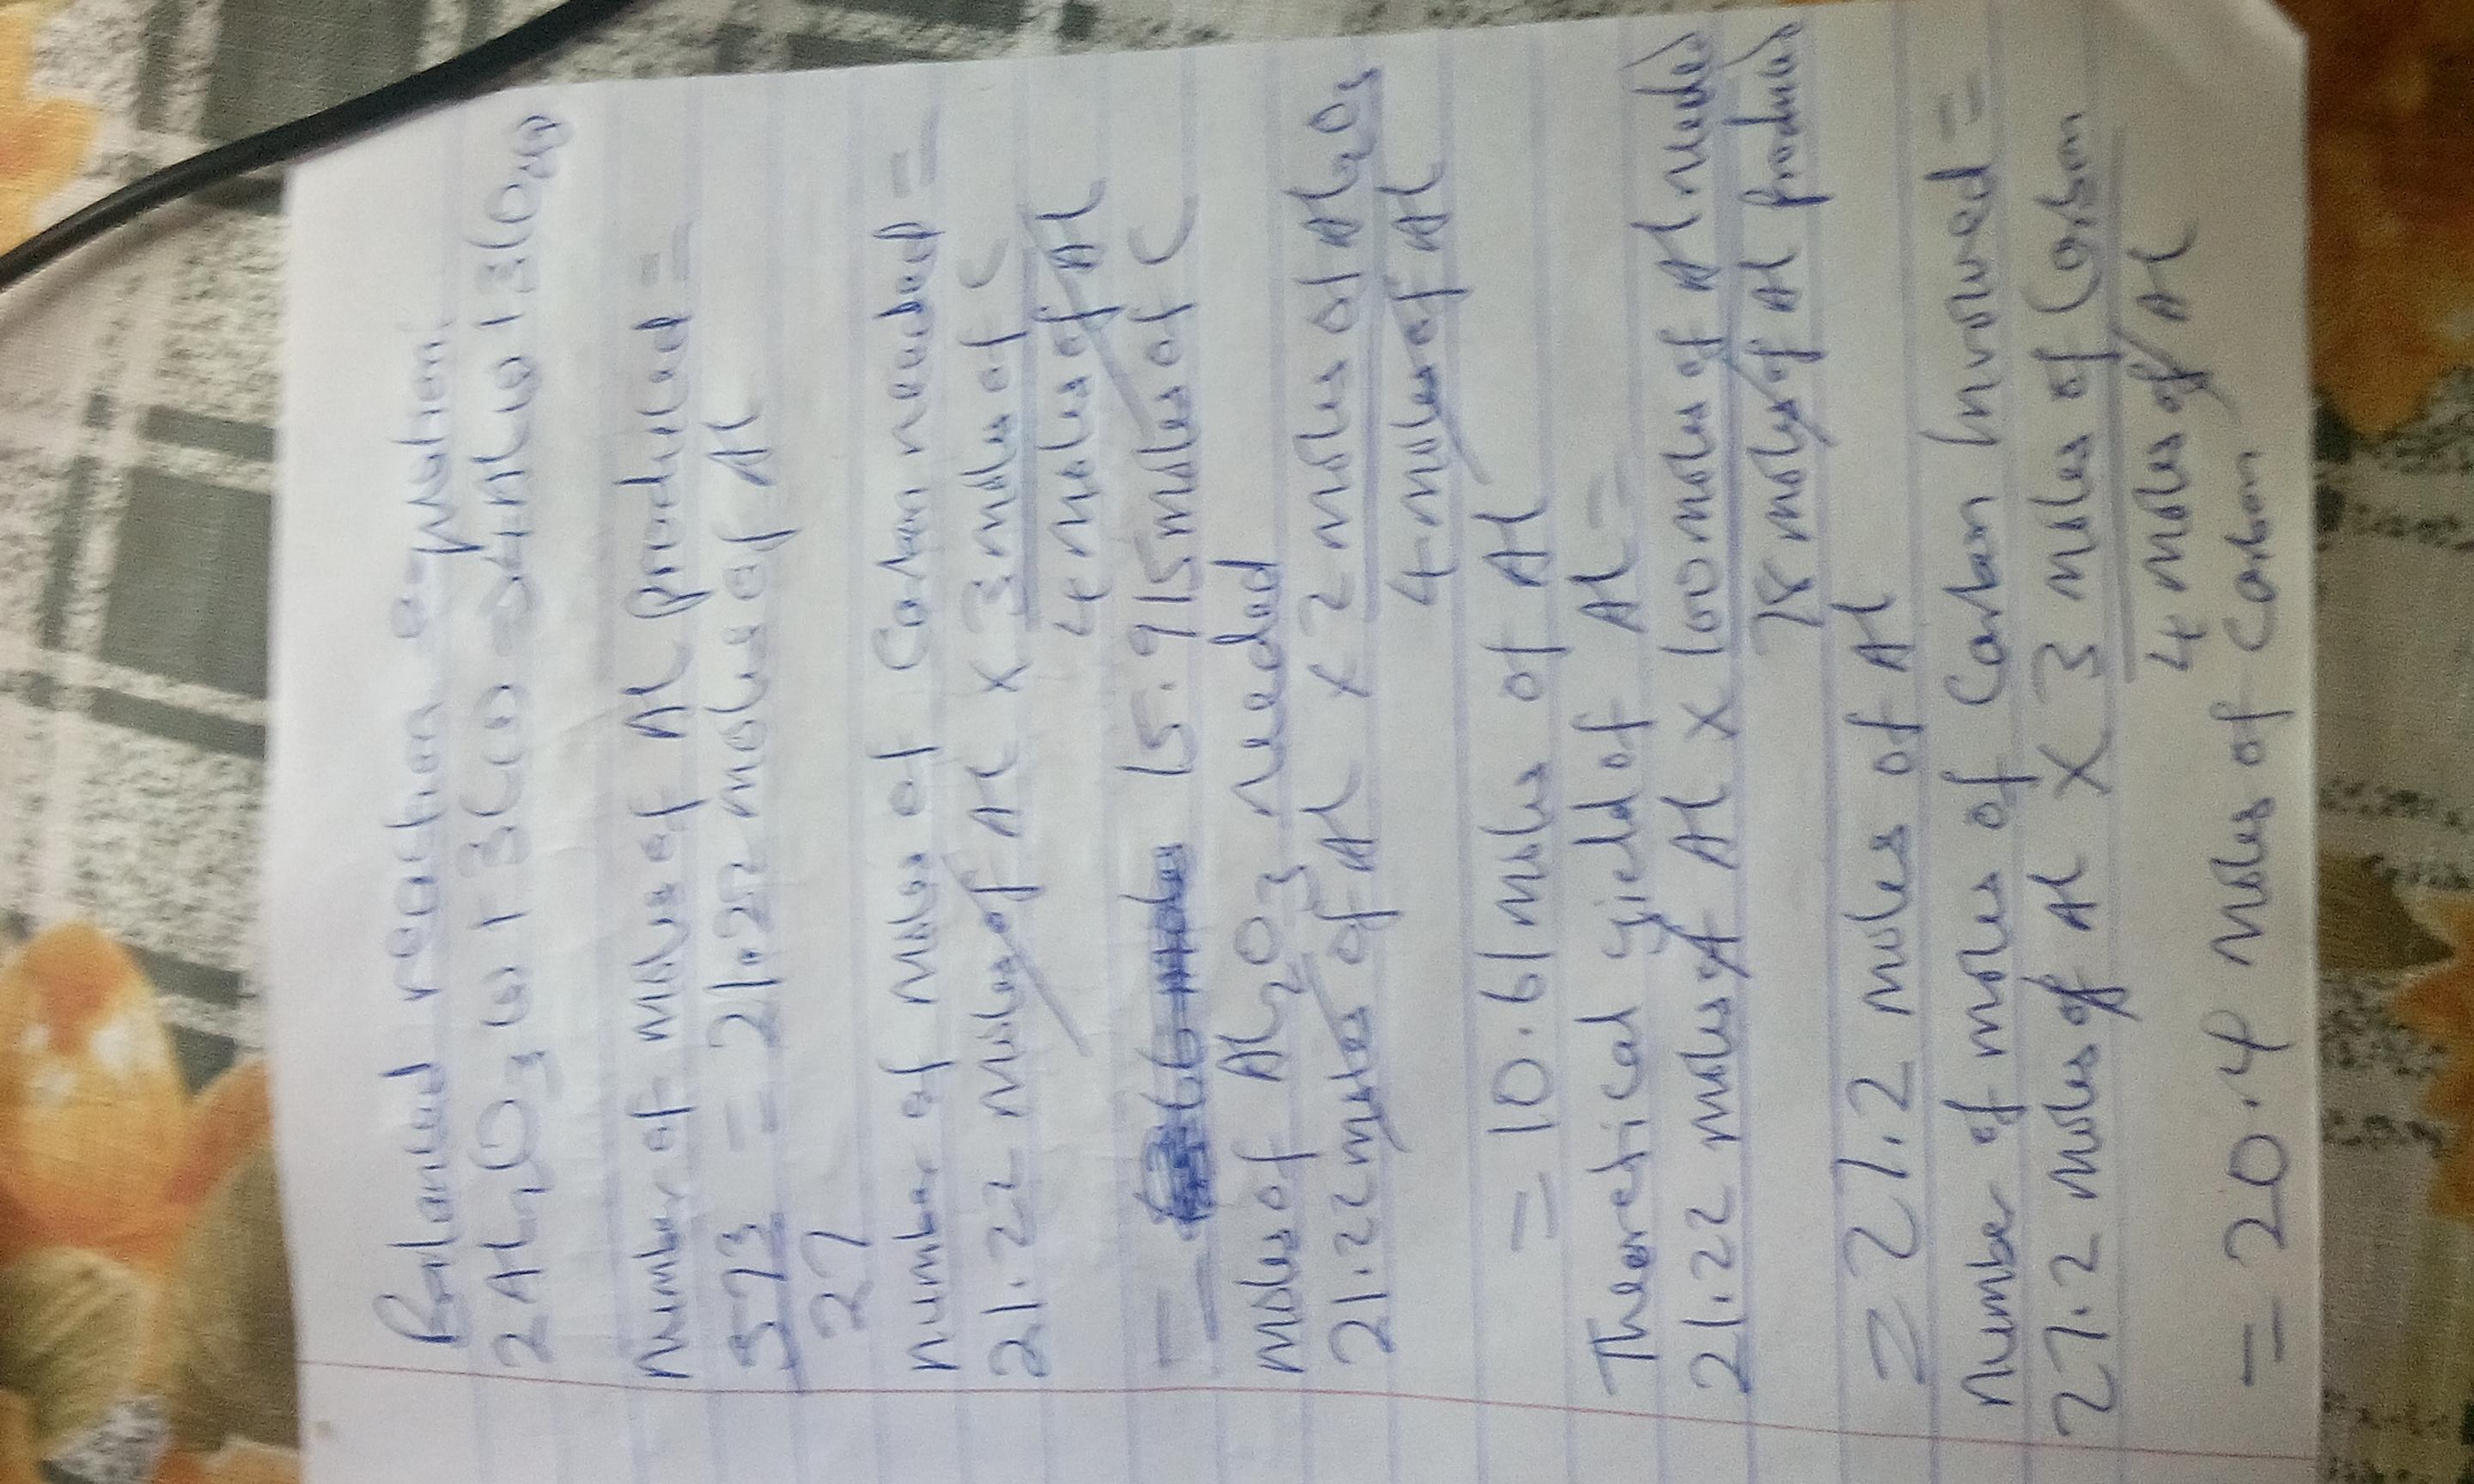 Balanced reaction equation:
2Al2O3(l) + 3C(s) → 4Al(l) + 3CO2(g)
Number of moles of Al produced =
573 = 21.22 moles of Al
27
Number of moles of Carbon needed =
21.22 moles of Al x 3 moles of C
4 moles of Al
= 15.915 moles of C
Moles of Al2O3 needed
21.22 moles of Al x 2 moles of Al2O3
4 moles of Al
= 10.61 moles of Al
Theoretical yield of Al =
21.22 moles of Al x 100 moles of Al needed
78 moles of Al produced
= 27.2 moles of Al
Number of moles of Carbon involved =
27.2 moles of Al x 3 moles of Carbon
4 moles of Al
= 20.4 moles of Carbon